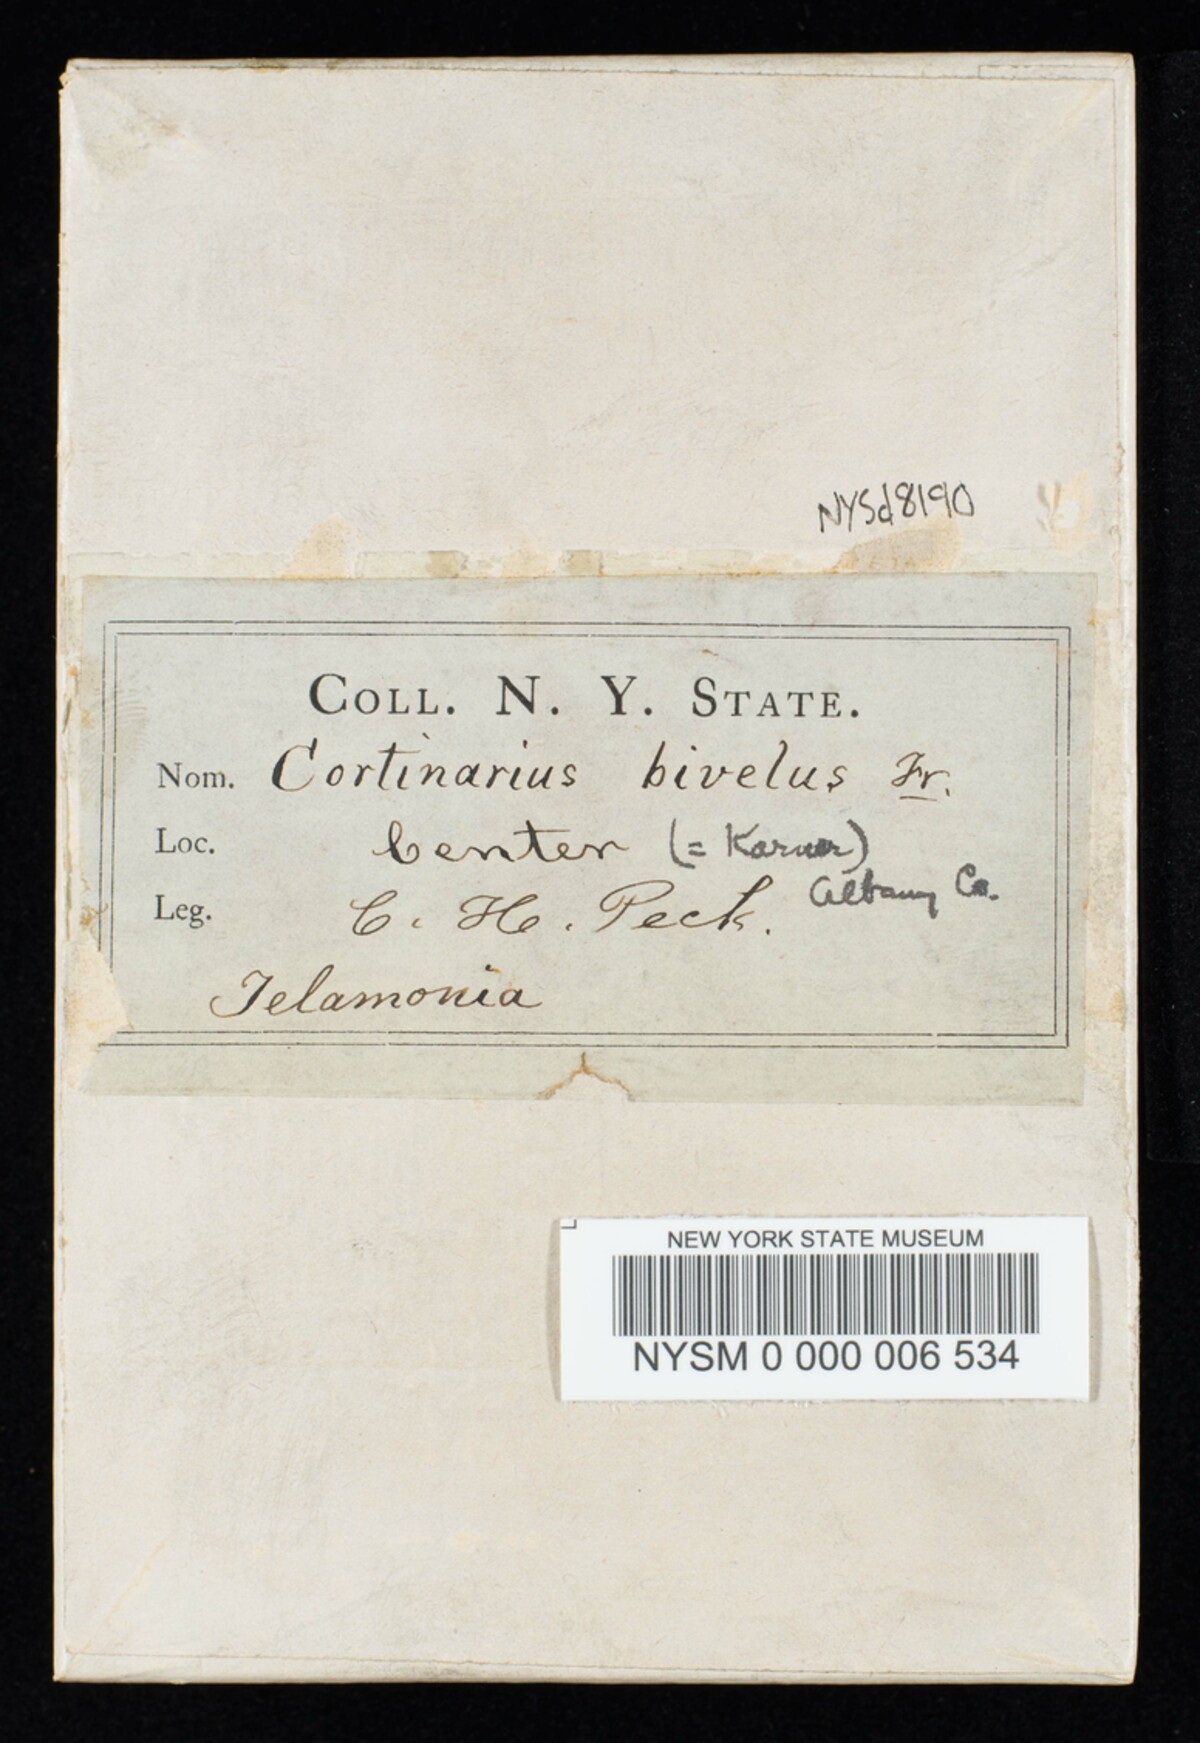 NYSd8190
COLL. N. Y. STATE.
Nom. Cortinarius bivelus Fr.
Loc. Center (= Karner)
Albany Co.
Leg. C. H. Peck.
Telamonia
NEW YORK STATE MUSEUM
NYSM 0 000 006 534